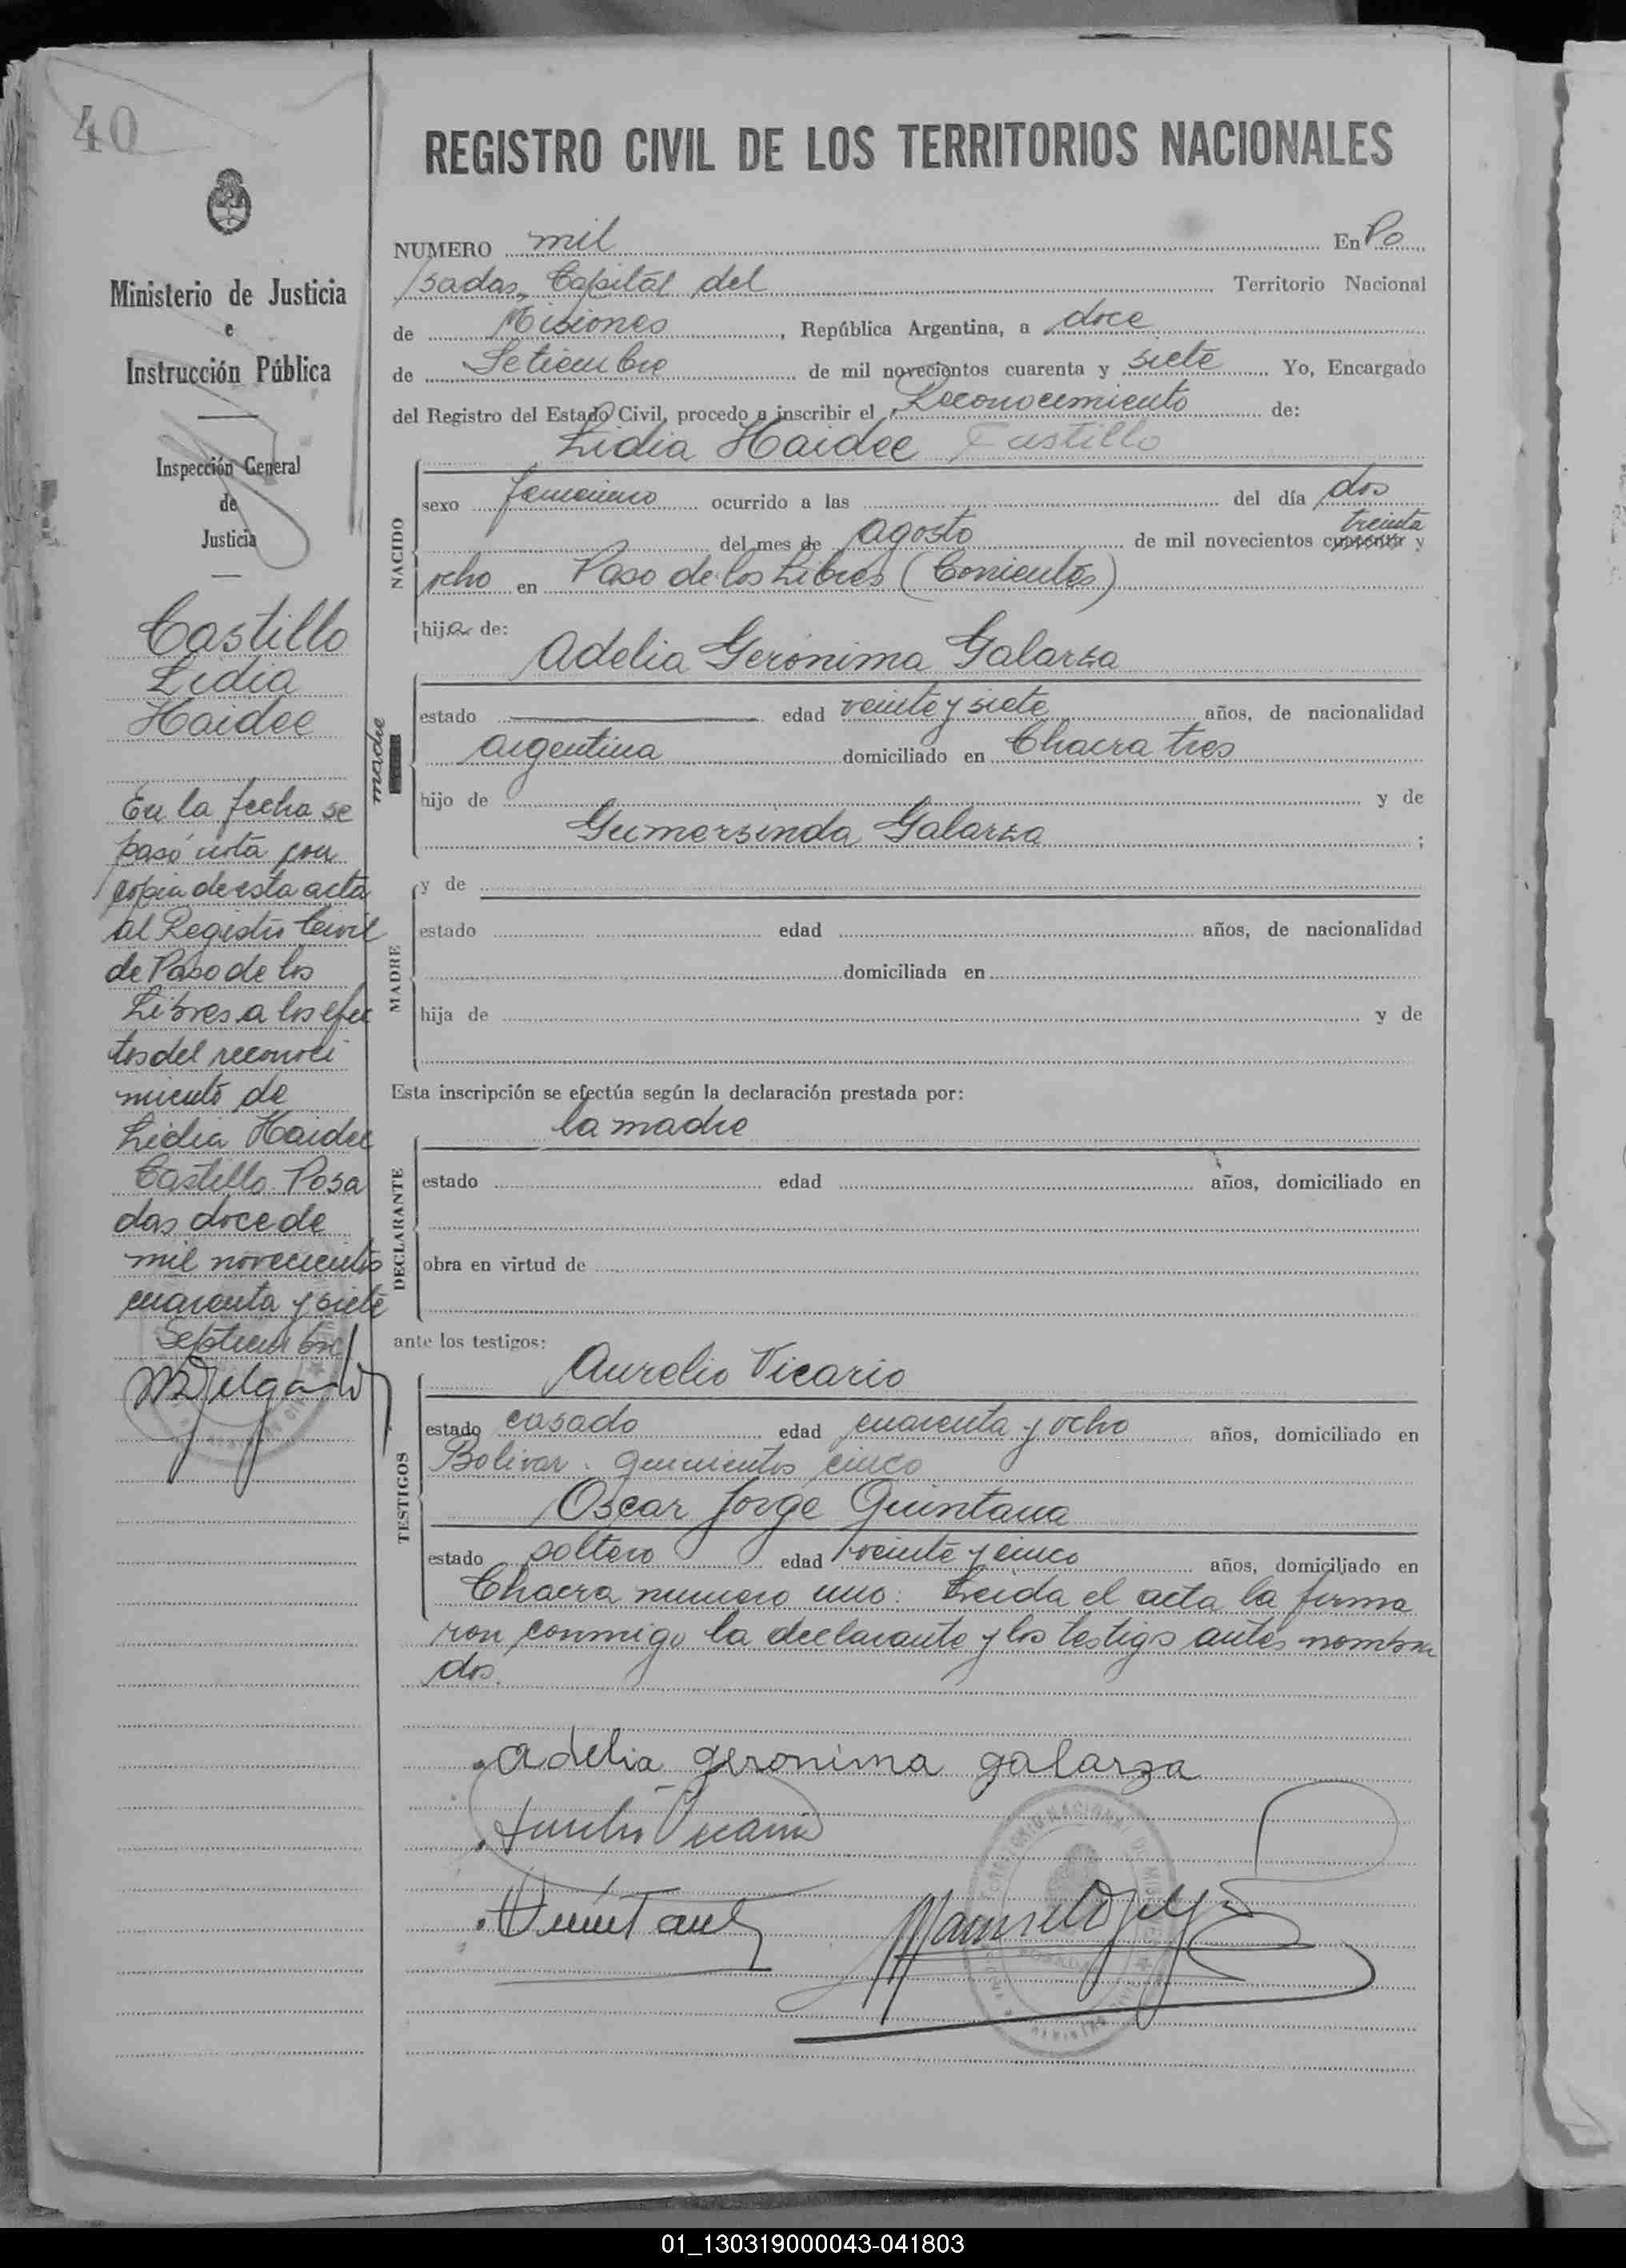 40
Ministerio de Justicia
e
Instrucción Pública
Inspección General
de
Justicia
Castillo
Lidia
Haidee
En la fecha se
pasó nota con
copia de esta acta
al Registro Civil
de Paso de los
Libres a los efec
tos del reconoci
miento de
Lidia Haidee
Castillo Posa
das doce de
mil novecientos
cuarenta y siete
Septiembre
MDelgado
REGISTRO CIVIL DE LOS TERRITORIOS NACIONALES
NUMERO mil En Po
sadas, Capital del Territorio Nacional
de Misiones, República Argentina, a doce
de Setiembre de mil novecientos cuarenta y siete Yo, Encargado
del Registro del Estado Civil, procedo a inscribir el Reconocimiento de:
Lidia Haidee Castillo
NACIDO
sexo femenino ocurrido a las del día dos
treinta
del mes de agosto de mil novecientos cuarenta y
ocho en Paso de los Libres (Corrientes)
hija de:
Adelia Gerónima Galarza
madre
estado edad veinte y siete años, de nacionalidad
argentina domiciliado en Chacra tres
hijo de y de
Gumersinda Galarza ;
MADRE
y de
estado edad años, de nacionalidad
domiciliada en
hija de y de
Esta inscripción se efectúa según la declaración prestada por:
la madre
DECLARANTE
estado edad años, domiciliado en
obra en virtud de
ante los testigos:
Aurelio Vicario
TESTIGOS
estado casado edad cuarenta y ocho años, domiciliado en
Bolivar quinientos cinco
Oscar Jorge Quintana
estado soltero edad veinte y cinco años, domiciliado en
Chacra numero uno: Leida el acta la firma
ron conmigo la declarante y los testigs antes nombra
dos.
adelia geronima galarza
Aurelio Vicario
Quintana
01_130319000043-041803